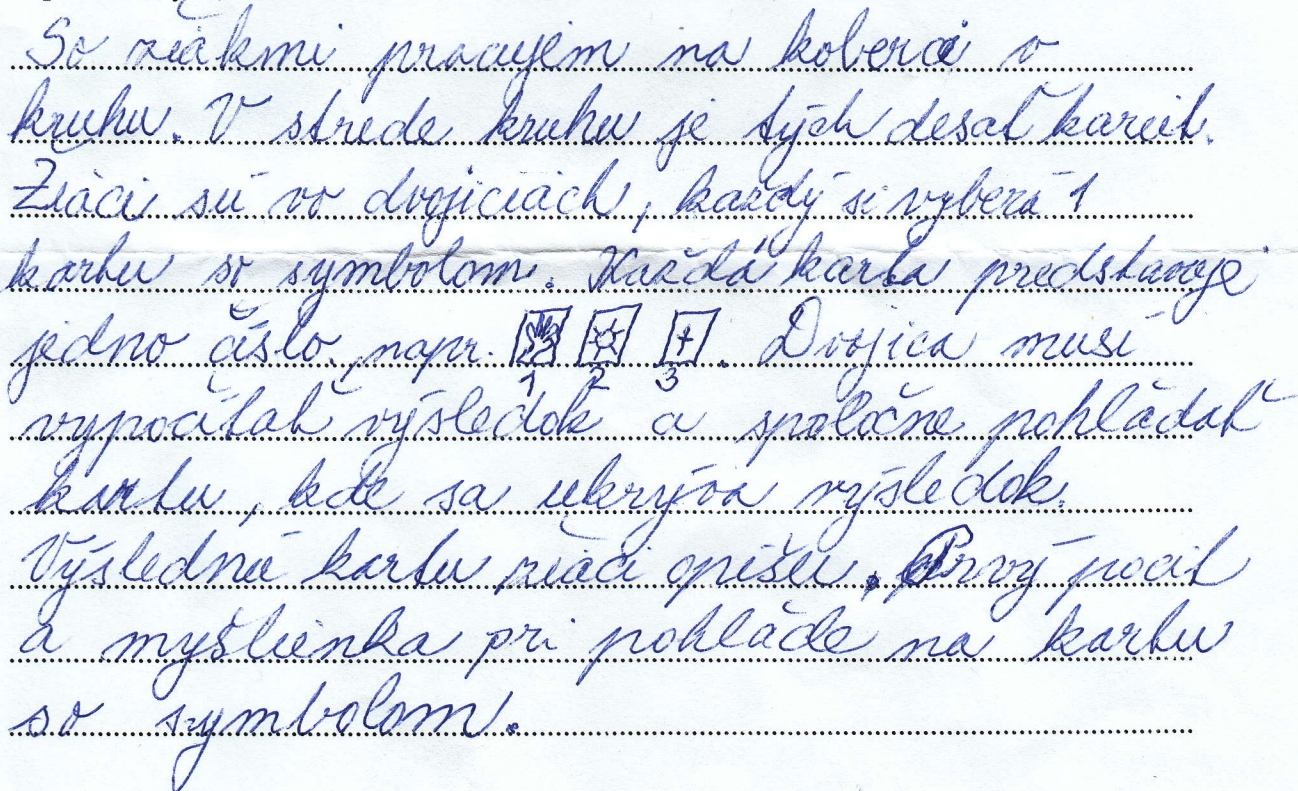 So žiakmi pracujem na koberci v
kruhu. V strede kruhu je tých desať kariet.
Žiaci sú vo dvojiciach, každý si vyberá 1
kartu so symbolom. Každá karta predstavuje
jedno číslo, napr. . Dvojica musí
1 2 3
vypočítať výsledok a spoločne pohľadať
kartu, kde sa ukrýva výsledok.
Výslednú kartu žiaci opíšu. Prvý pocit
a myšlienka pri pohľade na kartu
so symbolom.